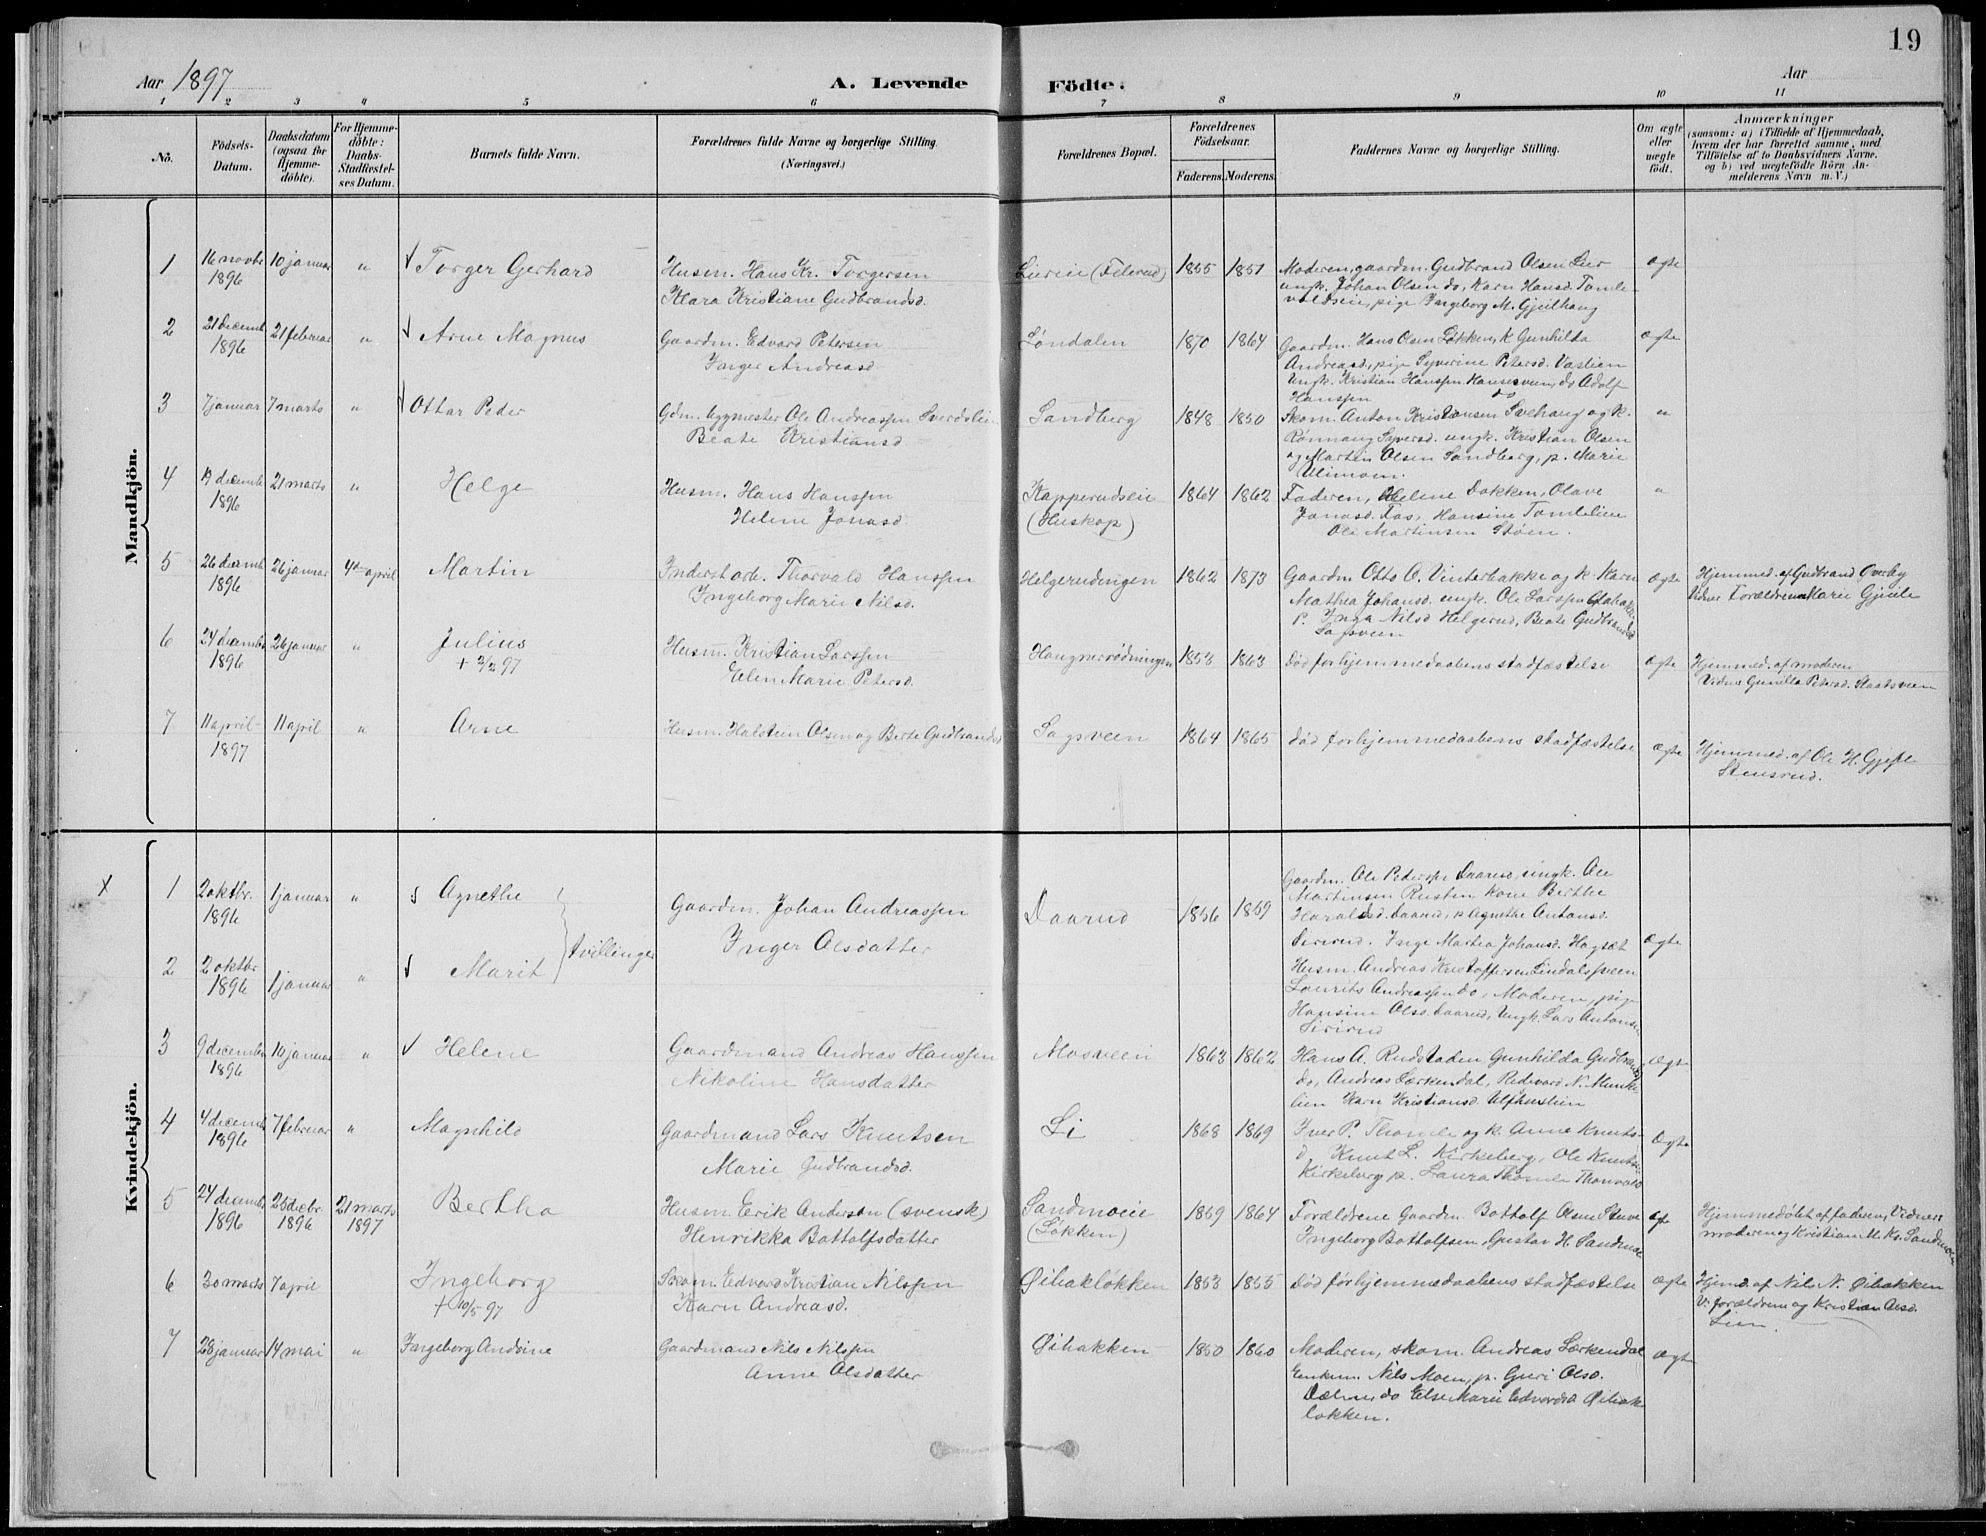 19
Aar 1897
A. Levende Födte.
Aar
1 2 3 4 5 6 7 8 9 10 11
No.
Födsels-Datum.
Daabsdatum (ogsaa for Hjemme-döbte).
For Hjemme-döbte: Daabs-Stadfæstel-ses Datum.
Barnets fulde Navn.
Forældrenes fulde Navne og borgerlige Stilling. (Næringsvei.)
Forældrenes Bopæl.
Forældrenes Födselsaar.
Faderens. Moderens.
Faddernes Navne og borgerlige Stilling.
Om ægte eller uægte födt.
Anmærkninger (saasom: a) i Tilfælde af Hjemmedaab, hvem der har forrettet samme, med Tilföielse af to Daabsvidners Navne, og b) ved uægtefödte Börn An-melderens Navn m. V.)
Mandkjön.
1 16 novbr 1896 10 januar " Torger Gerhard
Husm. Hans Kr. Torgersen
Klara Kristiane Gudbrandsd.
Liereie (Felerud) 1855 1851
Moderen, gaardm. Gudbrand Olsen Lier
ungk. Johan Olsen do, Karn Hansd. Tomle-
voldseie, pige Ingeborg M. Gjeilhaug
ægte
2 21 decemb 1896 21 februar " Arne Magnus
Gaardm. Edvard Petersen
Inger Andreasd.
Løndalen 1870 1864
Gaardm. Hans Olsen Løkken, k. Gunhilda
Andreasd, pige Syverine Petersd. Vastien
Ungk. Kristian Hanssen Hansesveen, do Adolf
Hanssen do
ægte
3 7 januar 7 marts " Ottar Peder
Gdm. bygmester Ole Andreassen Sverdslien
Beate Kristiansd
Sandberg 1848 1850
Skom. Anton Kristiansen Svehaug og k.
Rønnaug Syversd. ungk. Kristian Olsen
og Martin Olsen Sandberg, p. Marie
Ulimoen.
"
4 19 decemb 1896 21 marts " Helge
Husm. Hans Hanssen
Helene Jonasd.
Kapperudseie (Huskop) 1864 1862
Faderen, Helene Dokken, Olave
Jonasd. Fos, Hansine Tomlelien
Ole Martinsen Støen.
"
5 26 decemb 1896 26 januar 4de april Martin
Inderst arb. Thorvald Hanssen
Ingeborg Marie Nilsd.
Helgerudengen 1862 1873
Gaardm Otto O. Vinterbakke og k. Karn
Mathea Johansd. ungk. Ole Larssen
P. Inga Nilsd Helgerud, Beate Gudbrandsd
Sagsveen
ægte
Hjemmed. af Gudbrand Øverby
Vidner Forældrene Marie Gjeile
6 24 decemb 1896 26 januar " Julius
+ 2/2 97
Husm. Kristian Larssen
Elen Marie Petersd.
Haugnersødningen 1853 1863
død før hjemmedaabens stadfæstelse
ægte
Hjemmed. af moderen
Vidne Gunilla Petersd. Staatsveen
7 11 april 1897 11 april " Arne
Husm. Halstein Olsen og Berte Gudbrandsd
Sagsveen 1864 1865
død før hjemmedaabens stadfæstelse
ægte
Hjemmed. af Ole H. Gjefle
Stensrud.
Kvindekjön.
X
1 2 oktbr. 1896 1 januar " Agnethe
2 2 oktbr 1896 1 januar " Marit
tvillinger
Gaardm. Johan Andreassen
Inger Olsdatter
Daarud 1856 1859
Gaardm. Ole Pedersen Daarud, ungk. Ole
Martinsen Rusten kone Berthe
Haraldsd. Daarud, p. Agnethe Antonsd.
Sirirud. Inge Martea Johansd. Hagset
Husm. Andreas Kristoffersen Lindalsveen
Laurits Andreassen do, Moderen, pige
Hansine Olsd. Daarud, Ungk. Lars Antonsen
Sirirud
ægte
3 9 december 1896 10 januar " Helene
Gaardmand Andreas Hanssen
Nikoline Hansdatter
Mosveen 1863 1862
Hans A. Rudstaden, Gunhilda Gudbrandsd
do, Andreas Lærkendal, Redevard N. Munke-
lien Karn Kristiansd. Ulfhuslien
ægte
4 4 decemb 1896 7 februar " Magnhild
Gaardmand Lars Knutsen
Marie Gudbrandsd.
Li 1868 1869
Iver P. Thomle og k. Anne Knuts-
d, Knut L. Kirkeberg, Ole Knuts.
Kirkeberg p. Laura Thomle Thorvalds
ægte
5 24 decemb 1896 25 decbr. 1896 21 marts 1897 Bertha
Husm. Erik Anderson (svensk)
Henrikka Bottolfsdatter
Sandmoeie (Løkken) 1859 1864
Forældrene Gaardm. Bottolf Olsen Stuve
Ingeborg Bottolfsen, Gustav H. Sandmoe
ægte
Hjemmedøbt af faderen, Vidner:
moderen og Kristian M. Kr. Sandmoe
6 30 marts 7 april Ingeborg
+ 10/5 97
Skom. Edvard Kristian Nilssen
Karn Andreasd.
Øibakløkken 1853 1855
død før hjemmedaabens stadfæstelse
ægte
Hjemd. af Nils N. Øibakken
V. forældrene og Kristian Olsd.
Lien.
7 28 januar 14 mai " Ingeborg Andrine
Gaardmand Nils Nilssen
Anne Olsdatter
Øibakken 1850 1860
Moderen, skom. Andreas Lærkendal
Enkem. Nils Moen, p. Guri Olsd.
Dælen, do Else Marie Edvardsd Øibak-
løkken.
ægte